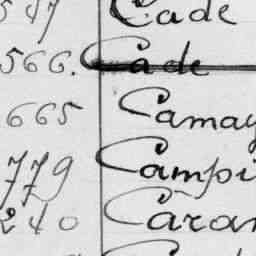 547 Cade
566. Cade
665 Camay
779 Campi
240 Caran